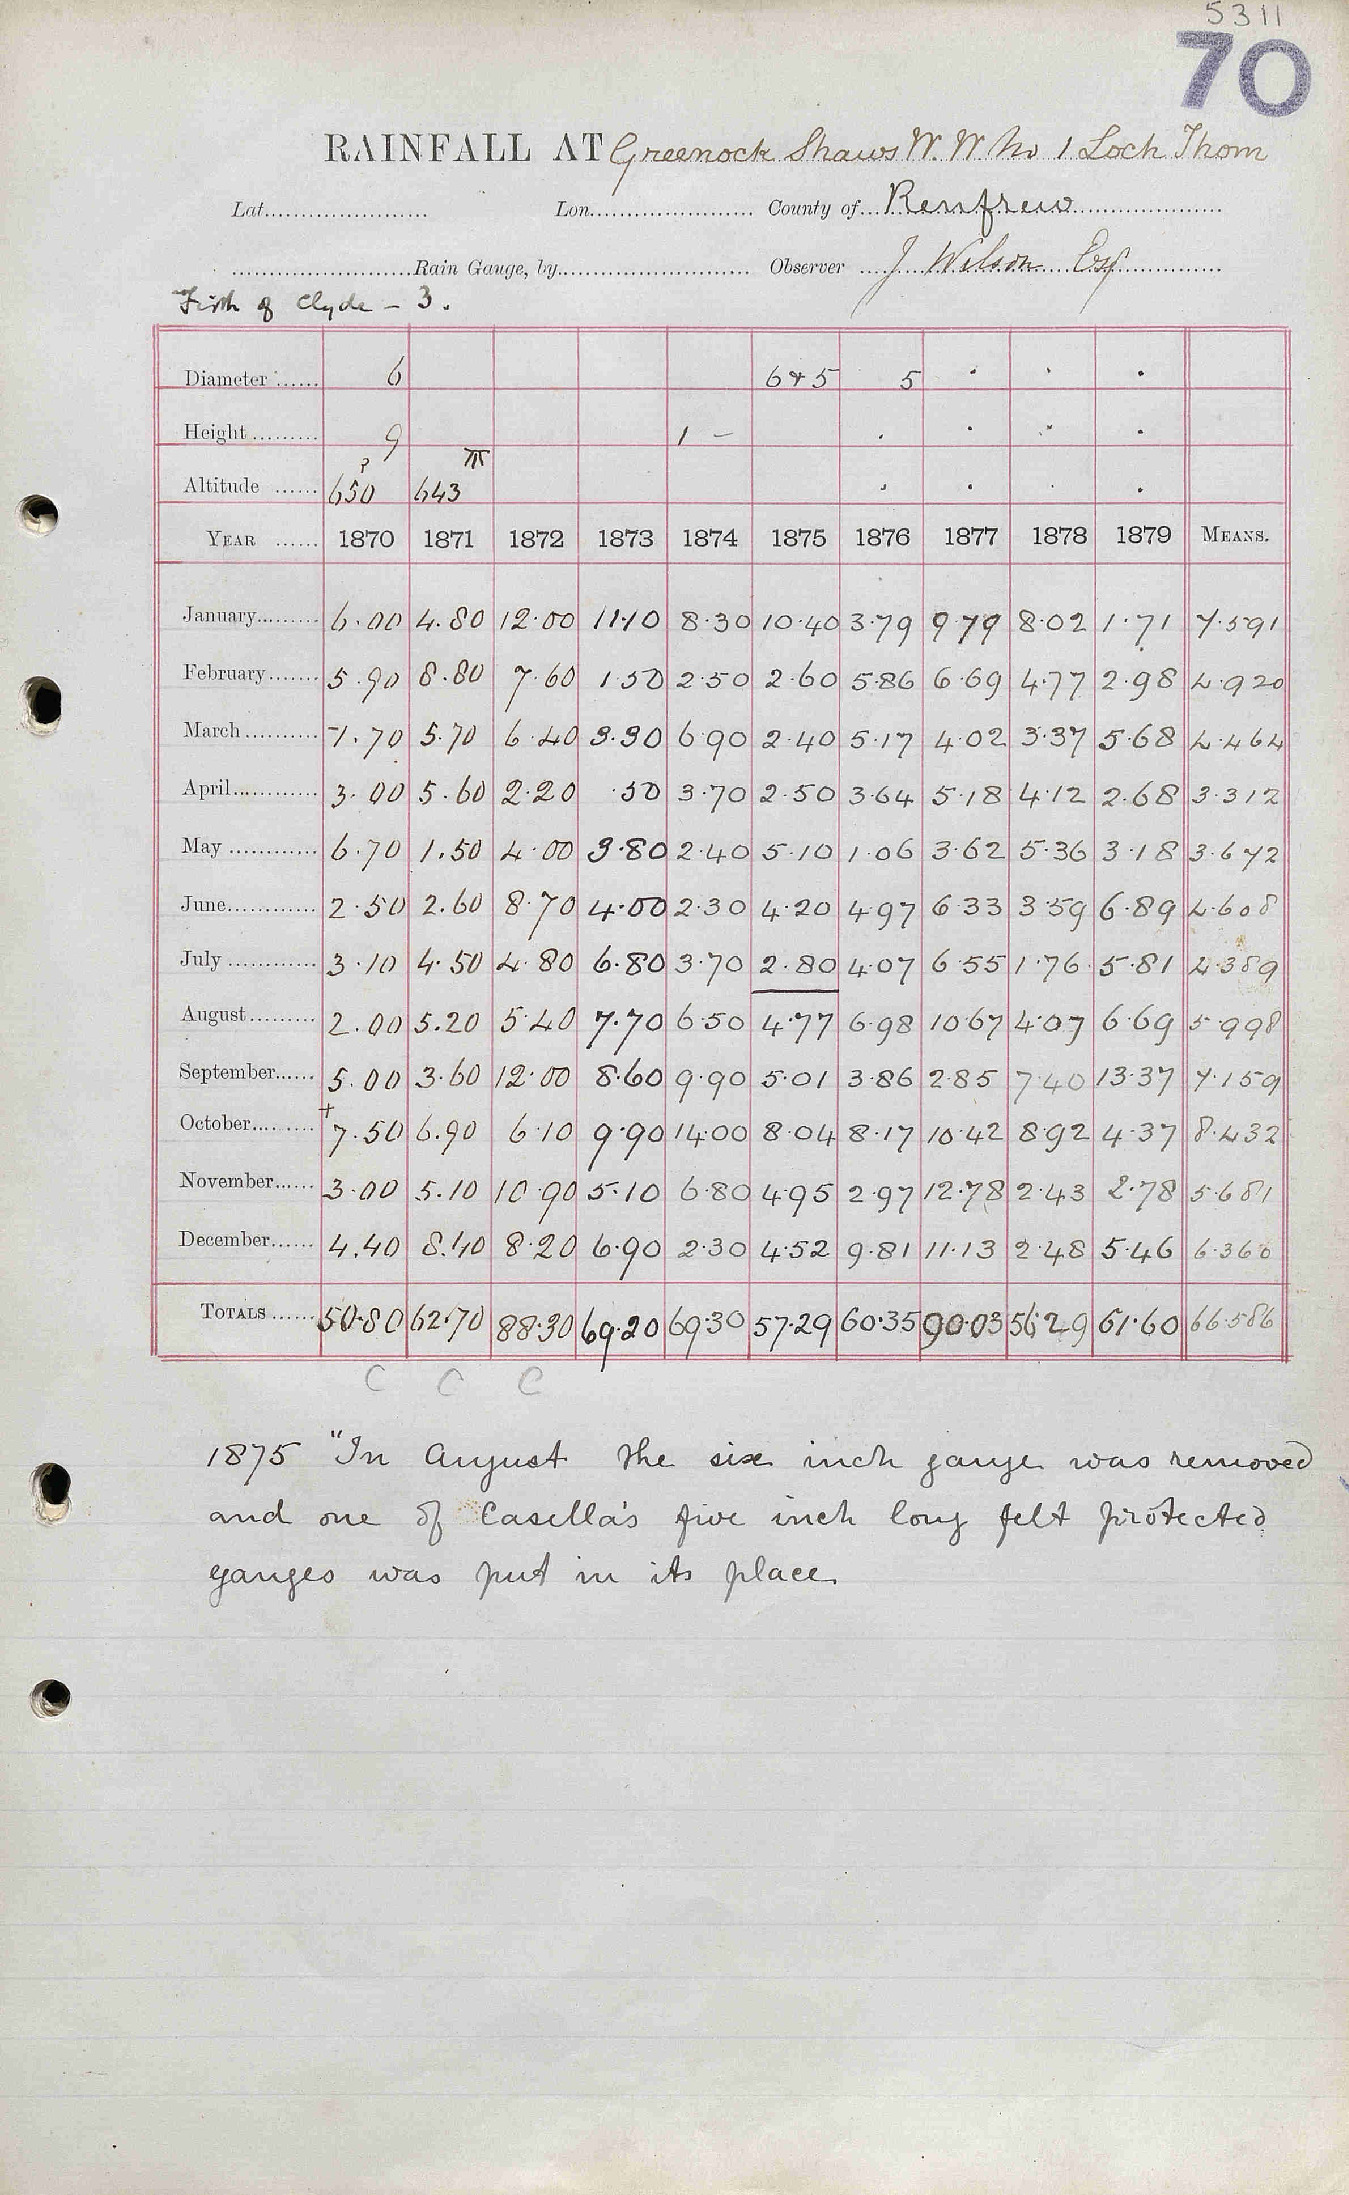 5311
70
RAINFALL AT Greenock Shaws W. W No 1 Loch Thom
Lat. Lon. County of Renfrew
Rain Gauge, by Observer J Wilson Esq
Firth of Clyde - 3.
Diameter 6 6 & 5 5 · · ·
Height 9 1 - · · · ·
Altitude ? 650 643 · · · ·
YEAR 1870 1871 1872 1873 1874 1875 1876 1877 1878 1879 MEANS.
January 6.00 4.80 12.00 11.10 8.30 10.40 3.79 9.79 8.02 1.71 7.591
February 5.90 8.80 7.60 1.50 2.50 2.60 5.86 6.69 4.77 2.98 4.920
March 1.70 5.70 6.40 3.30 6.90 2.40 5.17 4.02 3.37 5.68 4.464
April 3.00 5.60 2.20 .50 3.70 2.50 3.64 5.18 4.12 2.68 3.312
May 6.70 1.50 4.00 3.80 2.40 5.10 1.06 3.62 5.36 3.18 3.672
June 2.50 2.60 8.70 4.00 2.30 4.20 4.97 6.33 3.59 6.89 4.608
July 3.10 4.50 4.80 6.80 3.70 2.80 4.07 6.55 1.76 5.81 4.389
August 2.00 5.20 5.40 7.70 6.50 4.77 6.98 10.67 4.07 6.69 5.998
September 5.00 3.60 12.00 8.60 9.90 5.01 3.86 2.85 7.40 13.37 7.159
October + 7.50 6.90 6.10 9.90 14.00 8.04 8.17 10.42 8.92 4.37 8.432
November 3.00 5.10 10.90 5.10 6.80 4.95 2.97 12.78 2.43 2.78 5.681
December 4.40 8.40 8.20 6.90 2.30 4.52 9.81 11.13 2.48 5.46 6.360
TOTALS 50.80 62.70 88.30 69.20 69.30 57.29 60.35 90.03 56.29 61.60 66.586
C C C
1875 "In August the six inch gauge was removed
and one of Casella's five inch long felt protected
gauges was put in its place